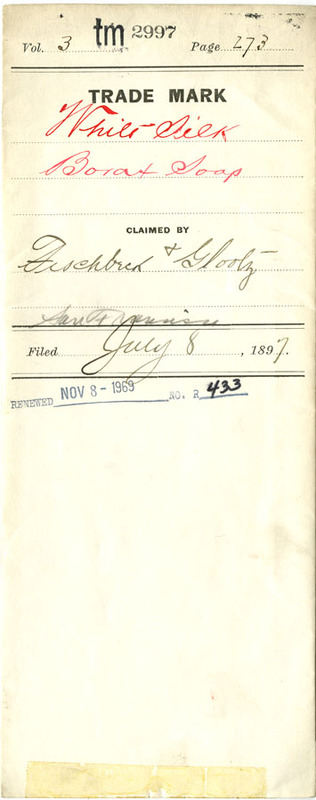 tm 2997
Vol. 3 Page 273
TRADE MARK
White Silk
Borax Soap
CLAIMED BY
Fischbeck & Glootz
San Francisco
Filed July 8, 1897.
RENEWED NOV 8 - 1969 NO. R 433